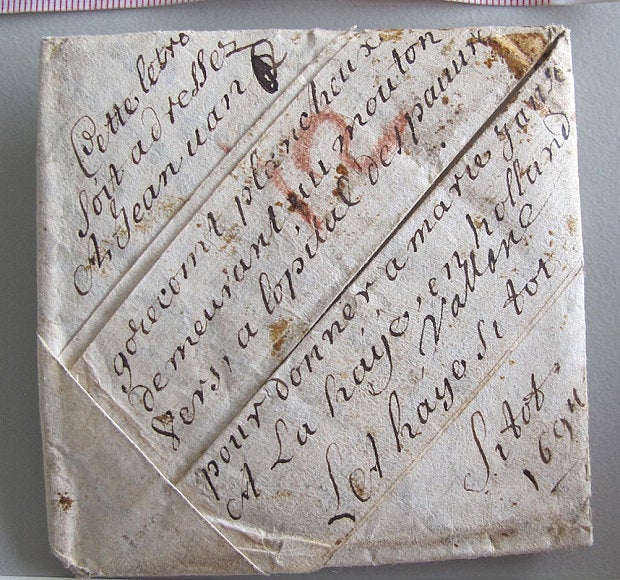 Cette letre
soit adresser
A Jean uan
gorecom't plancheur
demeurant au mouton
vers, a lopital des pauure
pour donner a marie
A La haÿe, en holland
Vallone
LaA haÿe si tot
Si tot
1694